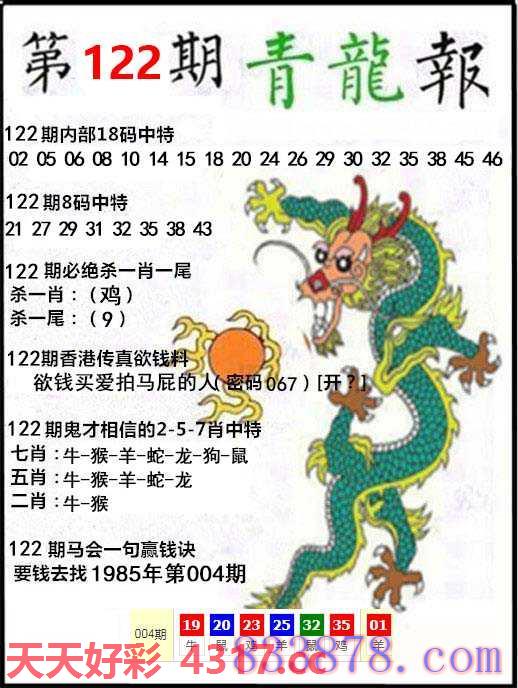 第122期 青龍報
122期内部18码中特
02 05 06 08 10 14 15 18 20 24 26 29 30 32 35 38 45 46
122期8码中特
21 27 29 31 32 35 38 43
122期必绝杀一肖一尾
杀一肖：（鸡）
杀一尾：（9）
122期香港传真欲钱料
欲钱买爱拍马屁的人（密码067）[开？]
122期鬼才相信的2-5-7肖中特
七肖：牛-猴-羊-蛇-龙-狗-鼠
五肖：牛-猴-羊-蛇-龙
二肖：牛-猴
122期马会一句赢钱诀
要钱去找1985年第004期
004期 19 20 23 25 32 35 01
牛 鼠 鸡 羊 鼠 鸡 羊
天天好彩 4317.cc
838878.com